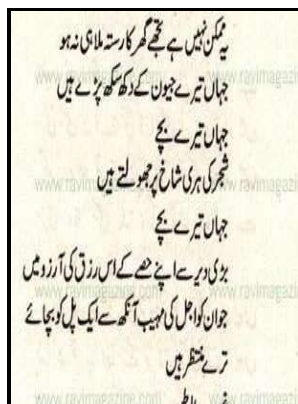 یہ ممکن نہیں ہے تجھے گھر کا رستہ ملا ہی نہ ہو
جہاں تیرے جیون کے دکھ سکھ پڑے ہیں
جہاں تیرے بچے
شجر کی ہری شاخ پر جھولتے ہیں
جہاں تیرے بچے
بڑی دیر سے اپنے حصے کے اس رزق کی آرزو میں
جو ان کو اجل کی مہیب آنکھ سے ایک پل کو بچائے
ترے منتظر ہیں
www.ravimagazi